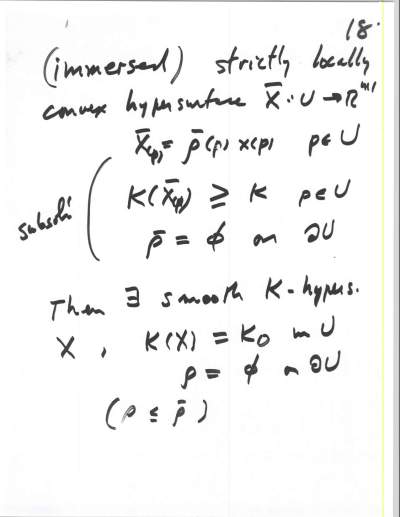 18.
(immersed) strictly locally
convex hypersurface X̄ : U → ℝⁿ⁺¹
X̄(p) = ρ̄(p) x(p) p ∈ U
subsol. ( K(X̄(p)) ≥ K p ∈ U
ρ̄ = ϕ on ∂U
Then ∃ smooth K-hypers.
X , K(X) = K₀ in U
ρ = ϕ on ∂U
(ρ ≤ ρ̄)